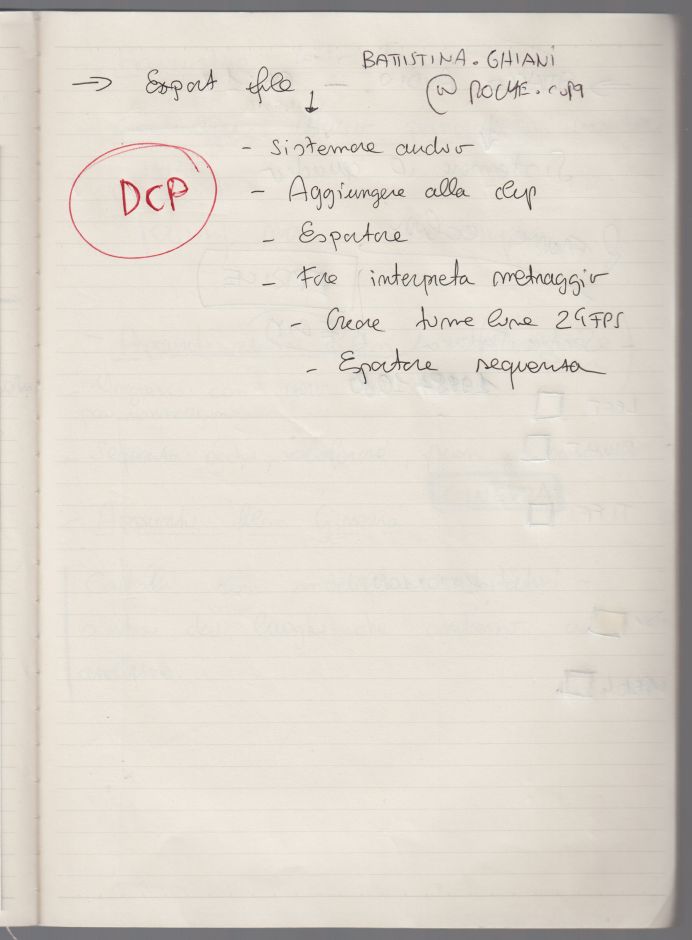 → Export file
BATTISTINA.GHIANI
@ ROCHE.com
↓
DCP
- Sistemare audio
- Aggiungere alla clip
- Esportare
- Fare interpreta metraggio
- Creare time line 24FPS
- Esportare sequenza